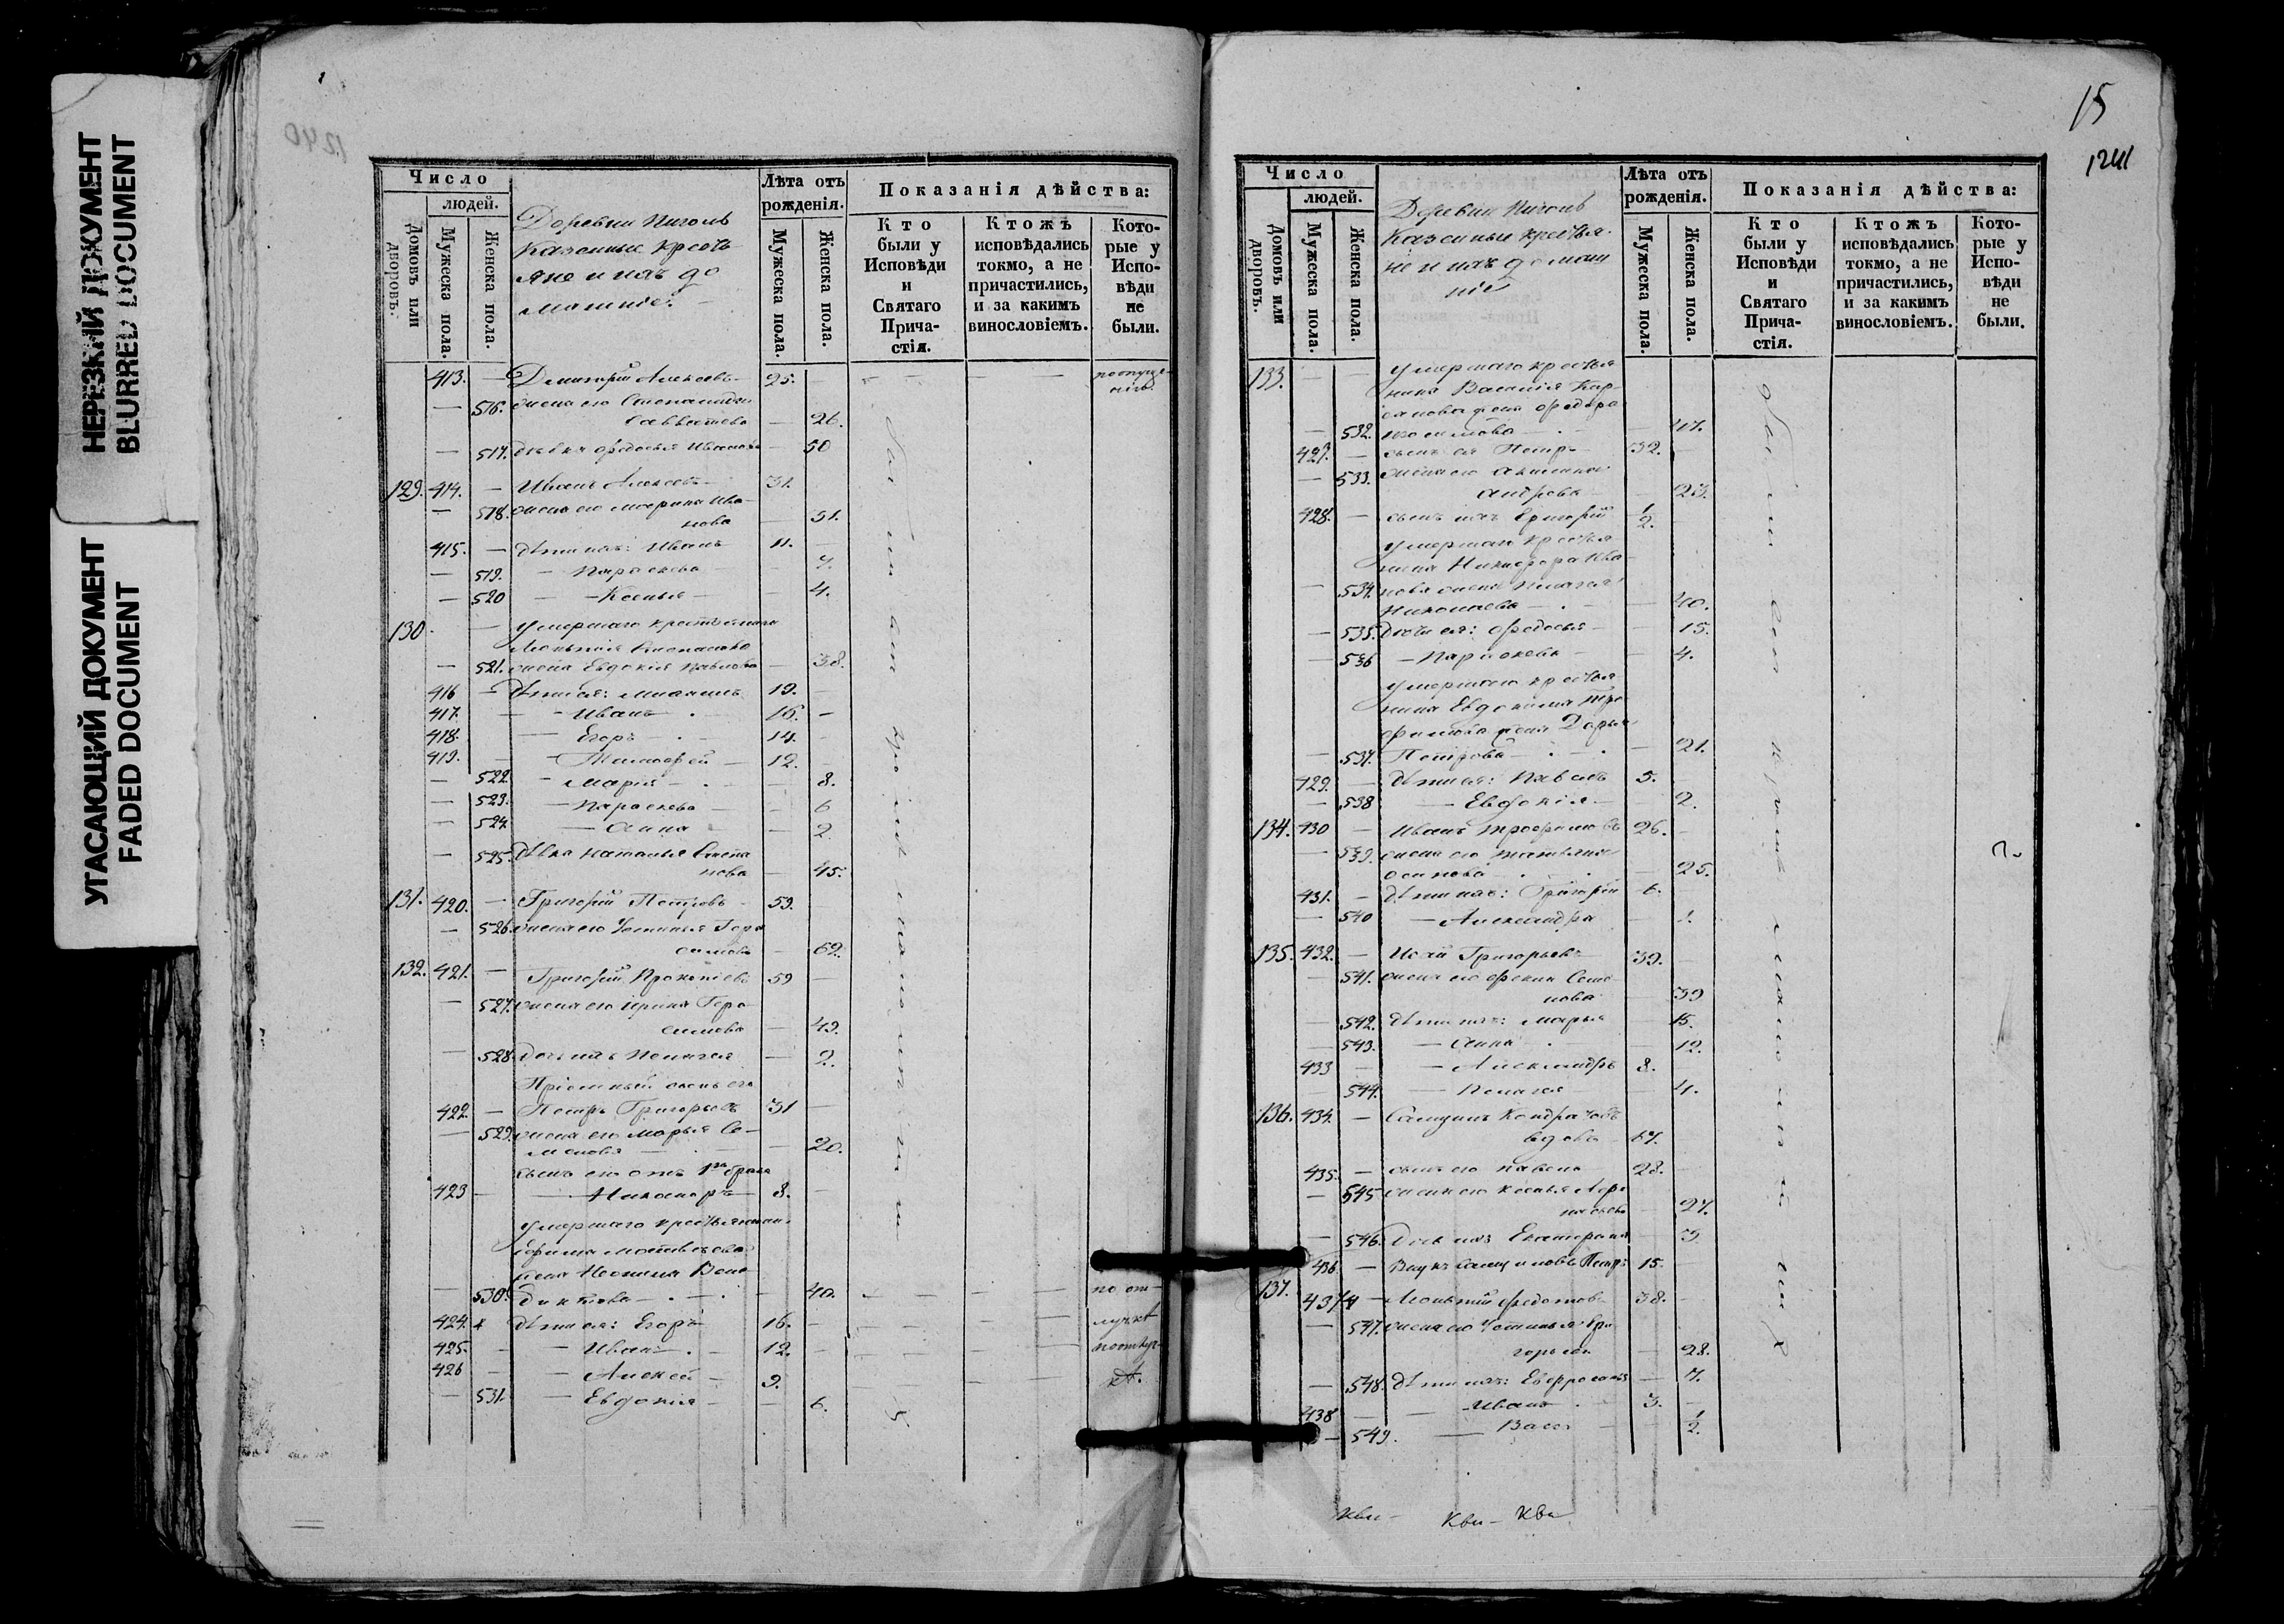 НЕРЕЗКИЙ ДОКУМЕНТ
BLURRED DOCUMENT
УГАСАЮЩИЙ ДОКУМЕНТ
FADED DOCUMENT
1240
Число
людей.
Домовъ или дворовъ.
Мужеска пола.
Женска пола.
Деревни
Казенные кресть
яне и ихъ до
машніе.
Лѣта отъ
рожденія.
Мужеска пола.
Женска пола.
Показанія дѣйства:
Кто
были у
Исповѣди
и
Святаго
Прича-
стія.
Ктожъ
исповѣдались
токмо, а не
причастились,
и за какимъ
винословіемъ.
Кото-
рые у
Испо-
вѣди
не
были.
413. — Дмитрій Алексѣевъ 25. —
— 516. жена его Степанида
Савватѣева — 26.
— 517. дѣвка Ѳедосья Иванова — 50
129. 414. — Иванъ Алексѣевъ 31.
— 518. жена его Марина Ива-
нова — 31.
415. — дѣти ихъ: Иванъ 11. —
— 519. — Параскева — 7.
— 520 — Ксенья — 4.
130. — умершаго крестьянина
Степанова
— 521. жена Евдокія Павлова — 38.
416 — дѣти ея: 19. —
417. — Иванъ 16. —
418. — Егоръ 14. —
419. — Тимоѳей 12. —
— 522. — Марія — 8.
— 523. — Параскева — 6
— 524. — Анна — 2.
— 525. дѣвка Наталья Степа
нова — 45.
131. 420. — Григорій Петровъ 59.
— 526. жена его Устинья Гера
симова — 62.
132. 421. — Григорій Прокопіевъ 59 —
— 527. жена его Ирина Гера-
симова — 49.
— 528. дочь ихъ Пелагея — 2.
Пріемный сынъ его
422. — Петръ Григорьевъ 31 —
— 529. жена его Марья Се-
менова — 20.
сынъ его отъ 1го брака
423 — Никаноръ 8. —
умершаго крестьянина
Ефима Матвѣева
жена Устинья Вене
— 530. диктова — 40.
по от-
лучкѣ
424. дѣти ея: Егоръ 16. —
425. — Иванъ 12. —
426 — Алексѣй 9.
— 531. — Евдокія — 6.
15
1241
Число
людей.
Домовъ или дворовъ.
Мужеска пола.
Женска пола.
Деревни
Казенные крестья-
не и ихъ домаш
ніе
Лѣта отъ
рожденія.
Мужеска пола.
Женска пола.
Показанія дѣйства:
Кто
были у
Исповѣди
и
Святаго
Прича-
стія.
Ктожъ
исповѣдались
токмо, а не
причастились,
и за какимъ
винословіемъ.
Кото-
рые у
Испо-
вѣди
не
были.
133. — — умершаго крестья
нина Василія Кар-
жена Ѳедора
— 532. 47.
427. — сынъ ея Петръ 32. —
— 533. жена его Акилина
Андрева — 23.
428. — сынъ ихъ Григорій 1/2. —
умершаго крестья
нина Никифора Ива
— 534. нова жена Пелагея
Николаева — 40.
— 535. дѣти ея: Ѳедосья — 15.
— 536 — Параскева — 4.
умершаго крестья
нина Евдокима Тро
фимова жена Дарья
— 537. Петрова — 21.
429. — дѣти ея: Павелъ 5. —
— 538 — Евдокія — 2.
134. 430 — Иванъ Трофимовъ 26. —
— 539. жена его Татьяна
Осипова — 25.
431. — дѣти ихъ: Григорій 6. —
— 540 — Александра — 1.
135. 432. — Исай Григорьевъ 39. —
— 541. жена его Ѳекла Семе
нова — 39
— 542. дѣти ихъ: Марья — 15.
— 543. — Анна — 12.
433 — Александръ 8. —
— 544. — Пелагея — 4.
136. 434. — Самуилъ Кондратьевъ
вдовъ 67.
435. — сынъ его Павелъ 28. —
— 545 жена его Ксенья
27.
— 546. дочь ихъ Екатерина — 3
436 — Внукъ Самуиловъ Петръ 15. —
137. 437 — Ѳедотовъ 38. —
— 547. жена его Устинья Гри
горьева — 28.
— 548. дѣти ихъ: Евфросинья — 7.
438 — Иванъ 3. —
— 549. — Васса — 1/2.
Кви — Кви — Кви